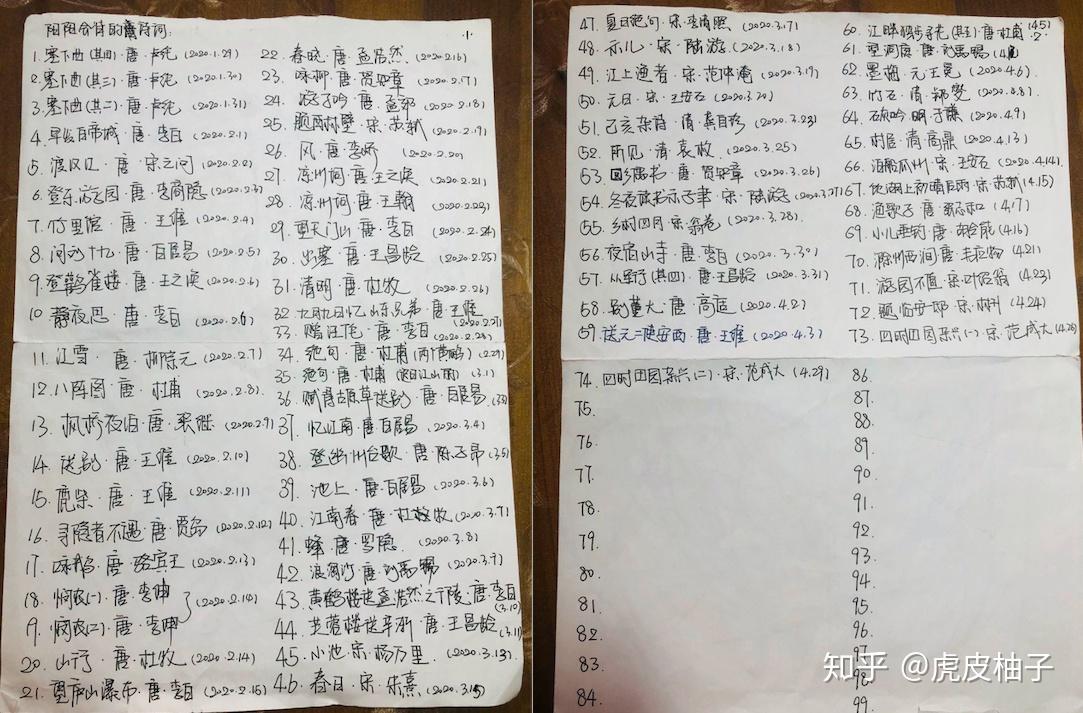 阳阳会背的唐诗词:
1. 塞下曲(其四)·唐·卢纶 (2020.1.29)
2. 塞下曲(其三)·唐·卢纶 (2020.1.30)
3. 塞下曲(其二)·唐·卢纶 (2020.1.31)
4. 早发白帝城·唐·李白 (2020.2.1)
5. 渡汉江·唐·宋之问 (2020.2.2)
6. 登乐游园·唐·李商隐 (2020.2.3)
7. 竹里馆·唐·王维 (2020.2.4)
8. 问刘十九·唐·白居易 (2020.2.5)
9. 登鹳雀楼·唐·王之涣 (2020.2.6)
10. 静夜思·唐·李白 (2020.2.6)
11. 江雪·唐·柳宗元 (2020.2.7)
12. 八阵图·唐·杜甫 (2020.2.8)
13. 枫桥夜泊·唐·张继 (2020.2.9)
14. 送别·唐·王维 (2020.2.10)
15. 鹿柴·唐·王维 (2020.2.11)
16. 寻隐者不遇·唐·贾岛 (2020.2.12)
17. 咏鹅·唐·骆宾王 (2020.2.13)
18. 悯农(一)·唐·李绅 (2020.2.14)
19. 悯农(二)·唐·李绅
20. 山行·唐·杜牧 (2020.2.14)
21. 望庐山瀑布·唐·李白 (2020.2.15)
22. 春晓·唐·孟浩然 (2020.2.16)
23. 咏柳·唐·贺知章 (2020.2.17)
24. 游子吟·唐·孟郊 (2020.2.18)
25. 题西林壁·宋·苏轼 (2020.2.19)
26. 风·唐·李峤 (2020.2.20)
27. 凉州词·唐·王之涣 (2020.2.21)
28. 凉州词·唐·王翰 (2020.2.23)
29. 望天门山·唐·李白 (2020.2.24)
30. 出塞·唐·王昌龄 (2020.2.25)
31. 清明·唐·杜牧 (2020.2.26)
32. 九月九日忆山东兄弟·唐·王维 (2020.2.27)
33. 赠汪伦·唐·李白 (2020.2.28)
34. 绝句·唐·杜甫(两个黄鹂) (2.29)
35. 绝句·唐·杜甫(迟日江山丽) (3.1)
36. 赋得古原草送别·唐·白居易
37. 忆江南·唐·白居易 (2020.3.4)
38. 登幽州台歌·唐·陈子昂 (3.5)
39. 池上·唐·白居易 (2020.3.6)
40. 江南春·唐·杜牧 (2020.3.7)
41. 蜂·唐·罗隐 (2020.3.8)
42. 浪淘沙·唐·刘禹锡 (2020.3.9)
43. 黄鹤楼送孟浩然之广陵·唐·李白 (3.10)
44. 芙蓉楼送辛渐·唐·王昌龄 (3.11)
45. 小池·宋·杨万里 (2020.3.13)
46. 春日·宋·朱熹 (2020.3.15)
47. 夏日绝句·宋·李清照 (2020.3.17)
48. 示儿·宋·陆游 (2020.3.18)
49. 江上渔者·宋·范仲淹 (2020.3.19)
50. 元日·宋·王安石 (2020.3.20)
51. 己亥杂诗·清·龚自珍 (2020.3.23)
52. 所见·清·袁枚 (2020.3.25)
53. 回乡偶书·唐·贺知章 (2020.3.26)
54. 冬夜读书示子聿·宋·陆游 (2020.3.27)
55. 乡村四月·宋·翁卷 (2020.3.28)
56. 夜宿山寺·唐·李白 (2020.3.30)
57. 从军行(其四)·唐·王昌龄 (2020.3.31)
58. 别董大·唐·高适 (2020.4.2)
59. 送元二使安西·唐·王维 (2020.4.3)
60. 江畔独步寻花(其五)·唐·杜甫 (4.5)
61. 望洞庭·唐·刘禹锡
62. 墨梅·元·王冕 (2020.4.6)
63. 竹石·清·郑燮 (2020.4.8)
64. 石灰吟·明·于谦 (2020.4.9)
65. 村居·清·高鼎 (2020.4.13)
66. 泊船瓜州·宋·王安石 (2020.4.14)
67. 饮湖上初晴后雨·宋·苏轼 (4.15)
68. 渔歌子·唐·张志和 (4.17)
69. 小儿垂钓·唐·胡令能 (4.16)
70. 滁州西涧·唐·韦应物 (4.21)
71. 游园不值·宋·叶绍翁 (4.23)
72. 题临安邸·宋·林升 (4.24)
73. 四时田园杂兴(一)·宋·范成大 (4.26)
74. 四时田园杂兴(二)·宋·范成大 (4.29)
75.
76.
77.
78.
79.
80.
81.
82.
83.
84.
86.
87.
88.
89.
90.
91.
92.
93.
94.
95.
96.
97.
98.
99.
知乎 @虎皮柚子